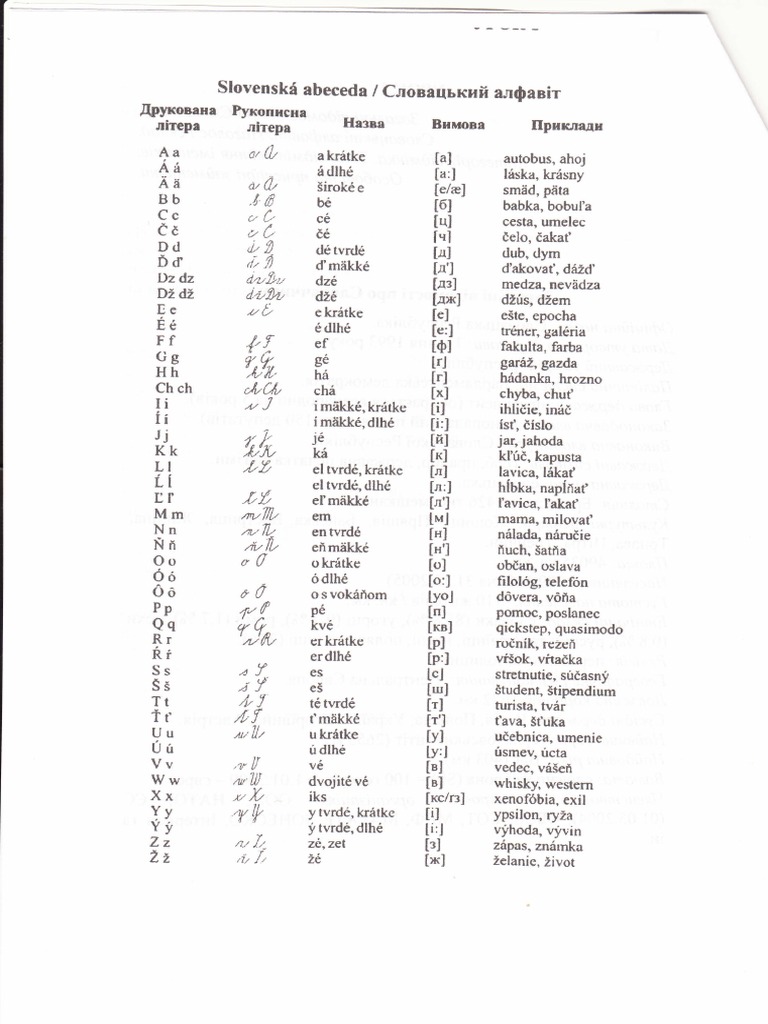 Slovenská abeceda / Словацький алфавіт
Друкована літера Рукописна літера Назва Вимова Приклади
A a a A a krátke [а] autobus, ahoj
Á á á dlhé [а:] láska, krásny
Ä ä a A široké e [е/æ] smäd, päta
B b b B bé [б] babka, bobuľa
C c c C cé [ц] cesta, umelec
Č č c C čé [ч] čelo, čakať
D d d D dé tvrdé [д] dub, dym
Ď ď ď mäkké [д'] ďakovať, dážď
Dz dz dz Dz dzé [дз] medza, nevädza
Dž dž dz Dz džé [дж] džús, džem
E e e E e krátke [е] ešte, epocha
É é é dlhé [е:] tréner, galéria
F f f F ef [ф] fakulta, farba
G g g G gé [ґ] garáž, gazda
H h h H há [г] hádanka, hrozno
Ch ch ch Ch chá [х] chyba, chuť
I i i I i mäkké, krátke [і] ihličie, ináč
Í í í mäkké, dlhé [і:] ísť, číslo
J j j J jé [й] jar, jahoda
K k k K ká [к] kľúč, kapusta
L l l L el tvrdé, krátke [л] lavica, lákať
Ĺ ĺ el tvrdé, dlhé [л:] hĺbka, napĺňať
Ľ ľ ľ L eľ mäkké [л'] ľavica, ľakať
M m m M em [м] mama, milovať
N n n N en tvrdé [н] nálada, náručie
Ň ň ň Ň eň mäkké [н'] ňuch, šatňa
O o o O o krátke [о] občan, oslava
Ó ó ó dlhé [о:] filológ, telefón
Ô ô o O o s vokáňom [уо] dôvera, vôňa
P p p P pé [п] pomoc, poslanec
Q q q Q kvé [кв] qickstep, quasimodo
R r r R er krátke [р] ročník, rezeň
Ŕ ŕ er dlhé [р:] vŕšok, vŕtačka
S s s S es [с] stretnutie, súčasný
Š š š Š eš [ш] študent, štipendium
T t t T té tvrdé [т] turista, tvár
Ť ť ť Ť ť mäkké [т'] ťava, šťuka
U u u U u krátke [у] učebnica, umenie
Ú ú ú dlhé [у:] úsmev, úcta
V v v V vé [в] vedec, vášeň
W w w W dvojité vé [в] whisky, western
X x x X iks [кс/гз] xenofóbia, exil
Y y y Y y tvrdé, krátke [і] ypsilon, ryža
Ý ý ý tvrdé, dlhé [і:] výhoda, vývin
Z z z Z zé, zet [з] zápas, známka
Ž ž ž Ž žé [ж] želanie, život